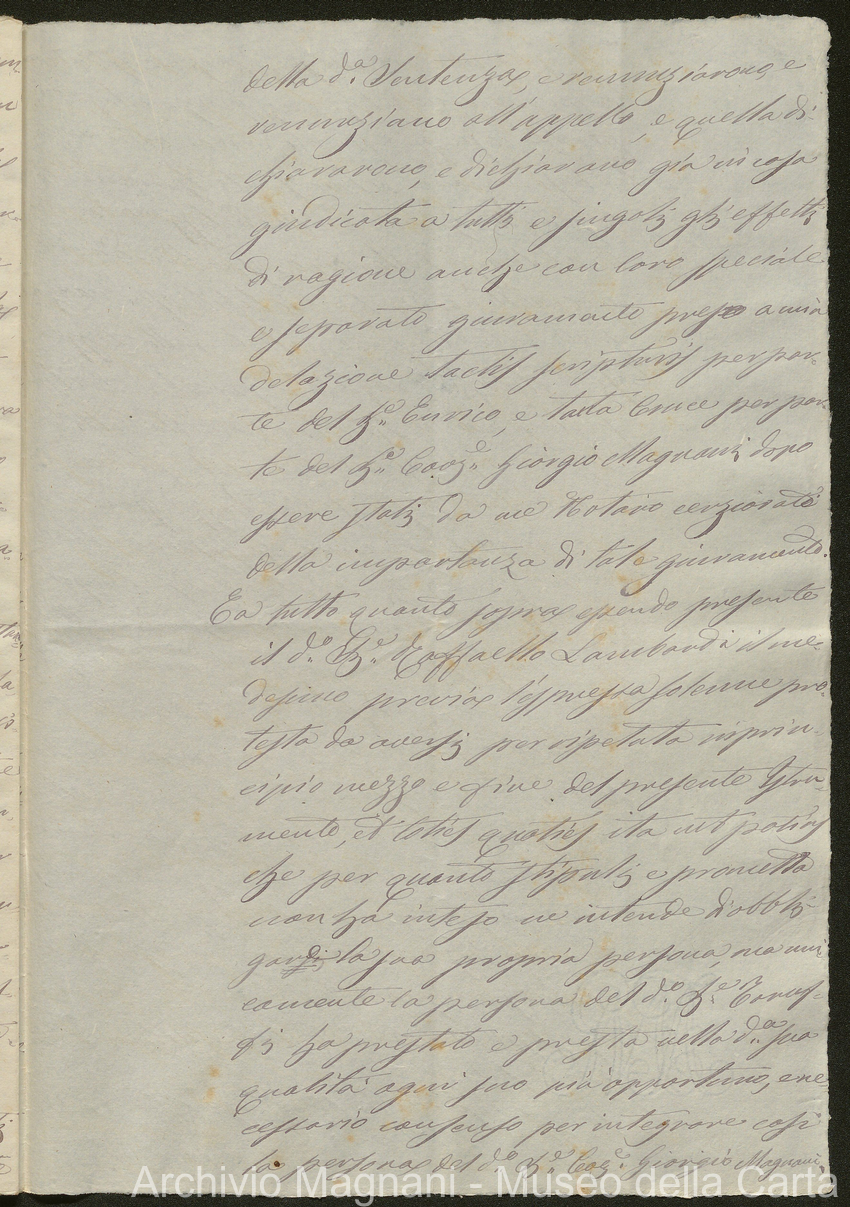 della d.ª Sentenza, e renunziarono e
renunziano all'appello, e quella di-
chiararono, e dichiarano già in cosa
giudicata a tutti e singoli gli effetti
di ragione anche con loro speciale
e separato giuramento preso a mia
delazione tactis scripturis per par-
te del Enrico, e tacta Cruce per par-
te del Giorgio Magnani dopo
essere stati da me Notaro cerziorati
della importanza di tale giuramento.
E a tutto quanto sopra essendo presente
il d.º Raffaello Lambardi il me-
desimo previa l'espressa solenne pro-
testa da aversi per ripetuta in prin-
cipio mezzo e fine del presente Istru-
mento, et toties quoties ita ut potius
che per quanto stipuli e prometta
non ha inteso ne intende di obbli-
gare la sua propria persona, ma uni-
camente la persona del d.º
ha prestato e presta nella d.ª sua
qualità ogni suo più opportuno, e ne-
cessario consenso per integrare così
la persona del d.º Giorgio Magnani,
Archivio Magnani - Museo della Carta